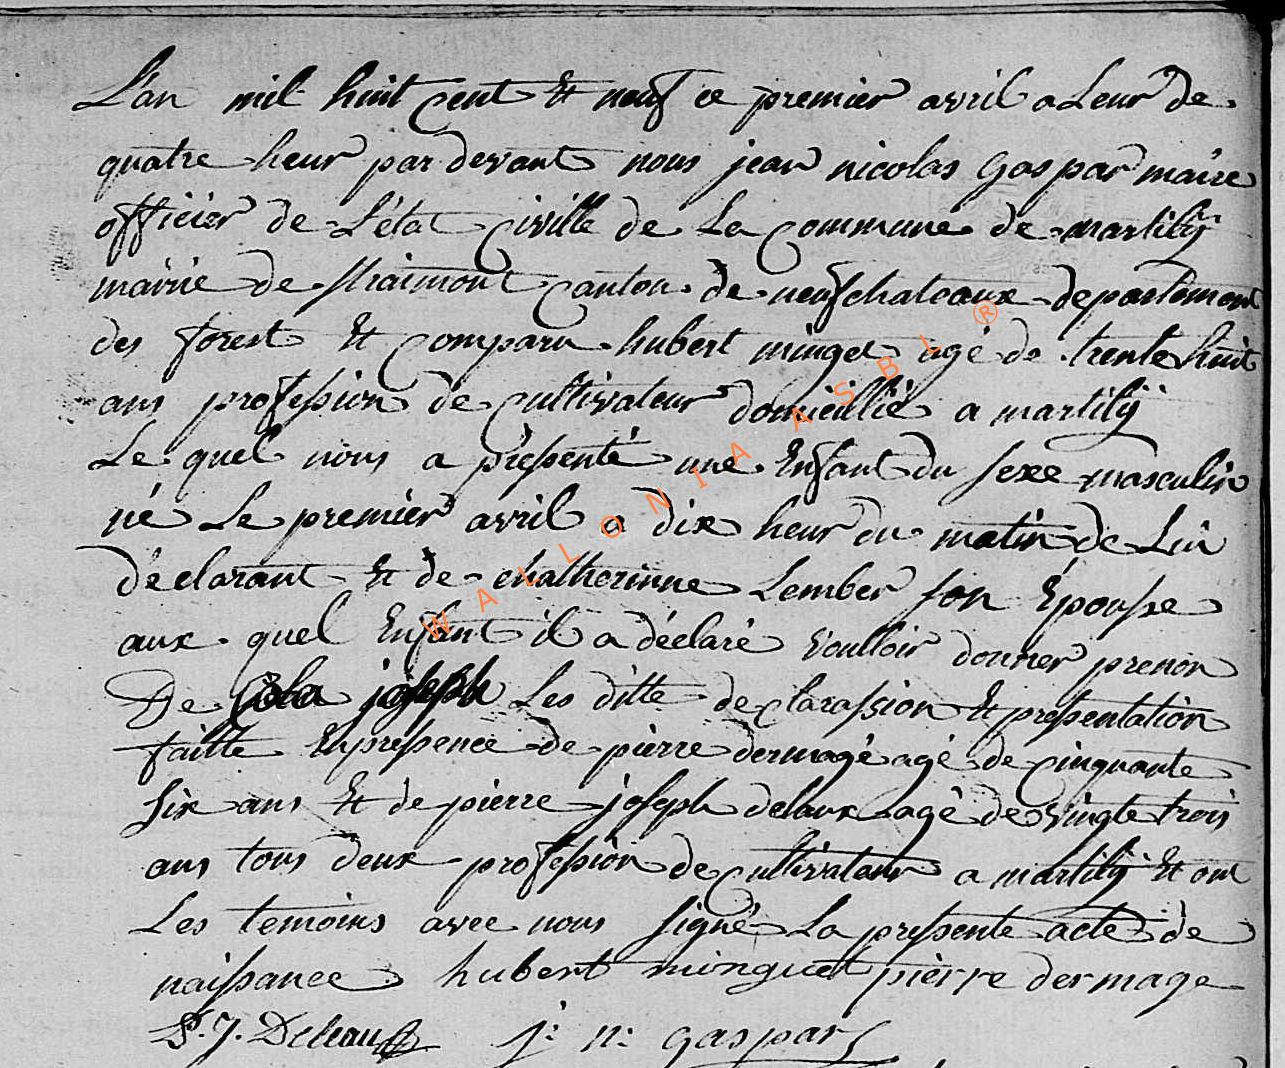 L'an mil huit cent et neuf ce premier avril a Leur de
quatre heur par devant nous jean nicolas gaspar maire
officier de L'état Civille de La Commune de martilly
mairie de straimont Canton de neufchateaux departement
des forest et Comparu hubert minget agé de trente huit
ans profession de Cultivateur domicillié a martilly
Le quel nous a presenté une Enfant du sexe masculin
né Le premier avril a dix heur du matin de Lui
déclarant et de chatherinne Lember son Epousse
aux quel Enfant il a déclaré voulloir donner prenon
De joseph Les ditte declarassion et presentation
faitte En presence de pierre dermage agé de Cinquante
six ans et de pierre joseph delaux agé de vingte trois
ans tous deux profession de Cultivateur a martilly et ont
Les temoins avec nous signé La presente acte de
naissance hubert minguet pierre dermage
P. J. Deleau j: n: gaspar
WALLONIA ASBL ®